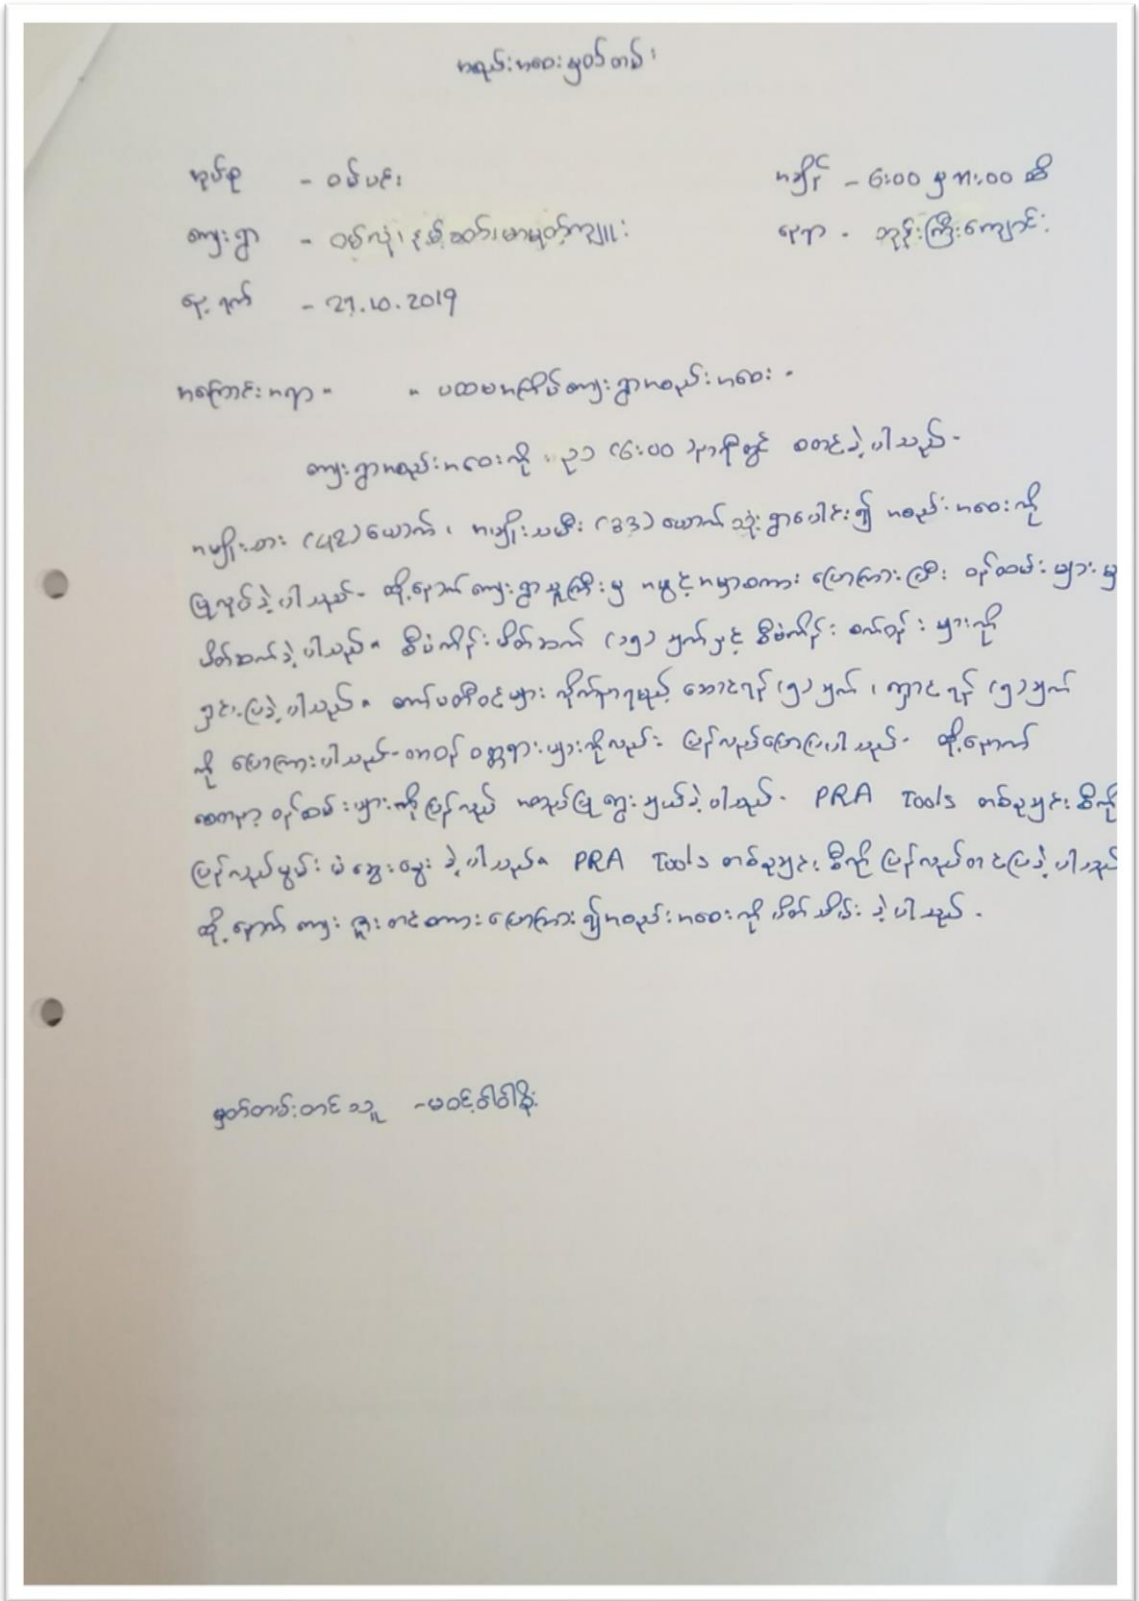 အစည်းအဝေးမှတ်တမ်း
အုပ်စု - ဝမ်ပင်း အချိန် - ၆:၀၀ မှ ၈:၀၀ ထိ
ကျေးရွာ - ဝမ်လုံ၊ နမ့် နေရာ - ဘုန်းကြီးကျောင်း
နေ့ရက် - 27.10.2019
အကြောင်းအရာ - ပထမအကြိမ်ကျေးရွာအစည်းအဝေး
ကျေးရွာအစည်းအဝေးကို ည (၆:၀၀) နာရီတွင် စတင်ခဲ့ပါသည်။
အမျိုးသား ယောက်၊ အမျိုးသမီး ယောက် သုံးရွာပေါင်း၍ အစည်းအဝေးကို
ပြုလုပ်ခဲ့ပါသည်။ ထို့နောက် ကျေးရွာသူကြီးမှ အဖွင့်အမှာစကား ပြောကြားပြီး ဝန်ထမ်းများမှ
မိတ်ဆက်ခဲ့ပါသည်။ စီမံကိန်းမိတ်ဆက် (၁၅) ချက်နှင့် စီမံကိန်း စက်ဝန်းများကို
ရှင်းပြခဲ့ပါသည်။ ကော်မတီဝင်များ လိုက်နာရမည့် ဆောင်ရန် (၅) ချက်၊ ရှောင်ရန် (၅) ချက်
ကို ပြောကြားပါသည်။ တာဝန် ဝတ္တရားများကိုလည်း ပြန်လည်ပြောပြပါသည်။ ထို့နောက်
စေတနာ့ ဝန်ထမ်းများကို ပြန်လည် အတည်ပြုရွေးချယ်ခဲ့ပါသည်။ PRA Tools တစ်ခုချင်းစီကို
ပြန်လည်မွမ်းမံဆွေးနွေးခဲ့ပါသည်။ PRA Tools တစ်ခုချင်းစီကို ပြန်လည်တင်ပြခဲ့ပါသည်
ထို့နောက် ကျေးဇူးတင်စကားပြောကြား၍ အစည်းအဝေးကို ပိတ်သိမ်းခဲ့ပါသည်။
မှတ်တမ်းတင်သူ - မဝင့်ဝါဝါခိုင်